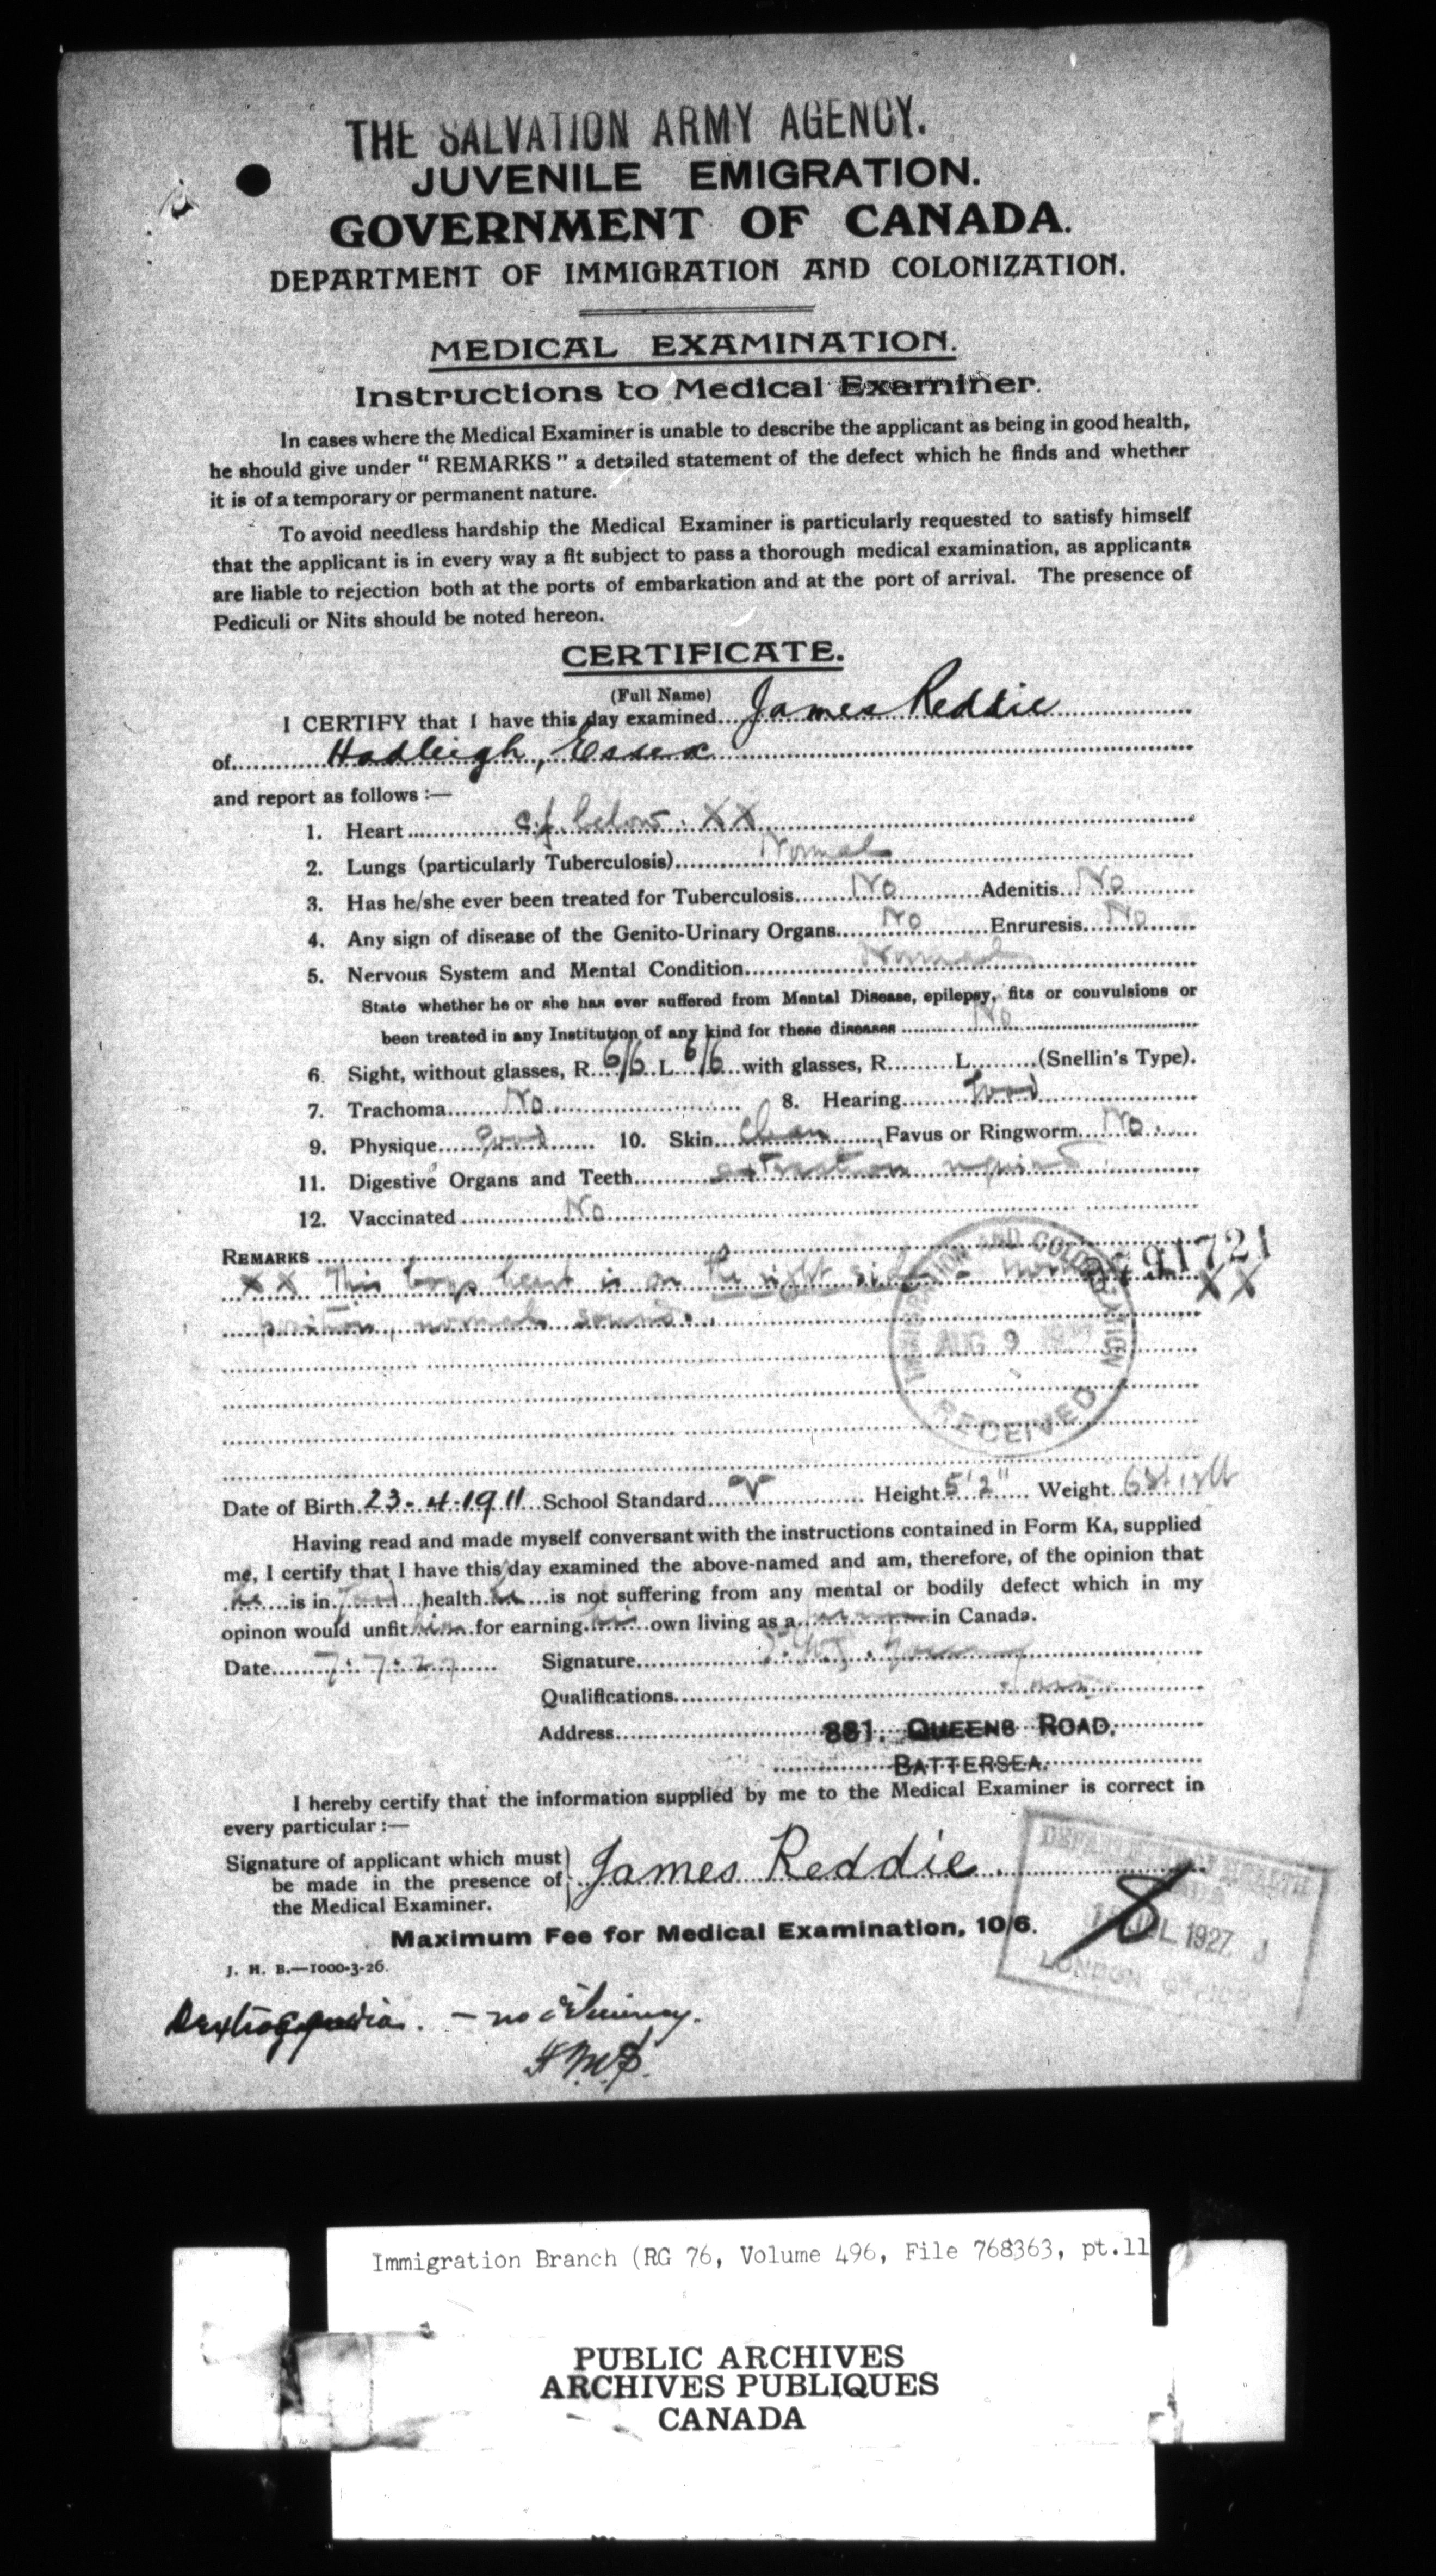 THE SALVATION ARMY AGENCY.
JUVENILE EMIGRATION.
GOVERNMENT OF CANADA.
DEPARTMENT OF IMMIGRATION AND COLONIZATION.
MEDICAL EXAMINATION.
Instructions to Medical Examiner.
In cases where the Medical Examiner is unable to describe the applicant as being in good health,
he should give under "REMARKS" a detailed statement of the defect which he finds and whether
it is of a temporary or permanent nature.
To avoid needless hardship the Medical Examiner is particularly requested to satisfy himself
that the applicant is in every way a fit subject to pass a thorough medical examination, as applicants
are liable to rejection both at the ports of embarkation and at the port of arrival. The presence of
Pediculi or Nits should be noted hereon.
CERTIFICATE.
(Full Name)
I CERTIFY that I have this day examined James Reddie
of Hadleigh, Essex
and report as follows :—
1. Heart c.f. below. XX
2. Lungs (particularly Tuberculosis) Normal
3. Has he/she ever been treated for Tuberculosis No Adenitis No
4. Any sign of disease of the Genito-Urinary Organs No Enruresis No
5. Nervous System and Mental Condition Normal
State whether he or she has ever suffered from Mental Disease, epilepsy, fits or convulsions or
been treated in any Institution of any kind for these diseases No
6. Sight, without glasses, R 6/6 L 6/6 with glasses, R L (Snellin's Type).
7. Trachoma No 8. Hearing Good
9. Physique Good 10. Skin Clean, Favus or Ringworm No
11. Digestive Organs and Teeth extraction required
12. Vaccinated No
REMARKS
XX This boys heart is on the right side - 91721
position, normal sounds. XX
IMMIGRATION AND COLONIZATION
AUG 9 1927
RECEIVED
Date of Birth 23-4-1911 School Standard V Height 5'2" Weight 6st
Having read and made myself conversant with the instructions contained in Form KA, supplied
me, I certify that I have this day examined the above-named and am, therefore, of the opinion that
he is in good health he is not suffering from any mental or bodily defect which in my
opinon would unfit him for earning his own living as a in Canada.
Date 7.7.27 Signature
Qualifications
Address 881, QUEENS ROAD,
BATTERSEA.
I hereby certify that the information supplied by me to the Medical Examiner is correct in
every particular :—
Signature of applicant which must
be made in the presence of James Reddie
the Medical Examiner.
Maximum Fee for Medical Examination, 10/6.
J. H. B.—1000-3-26.
DEPARTMENT OF HEALTH
CANADA
JUL 1927
LONDON OFFICE
- no deficiency.
Immigration Branch (RG 76, Volume 496, File 768363, pt.11
PUBLIC ARCHIVES
ARCHIVES PUBLIQUES
CANADA